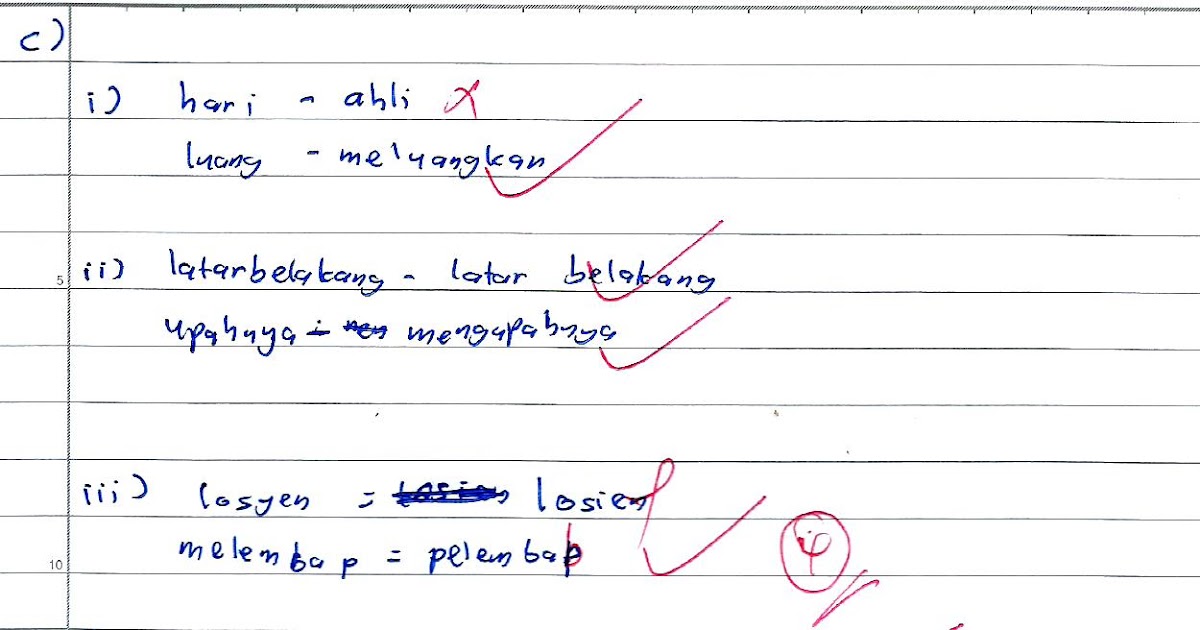 c)
i) hari - ahli
luang - meluangkan
5 ii) latarbelakang - latar belakang
upahnya - mengupahnya
iii) losyen = losien
10 melembap = pelembap
4